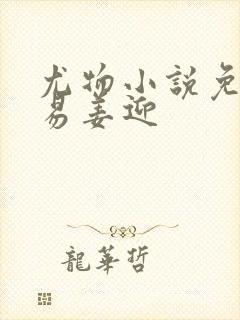 尤物小說免
易姜迎
龍華哲